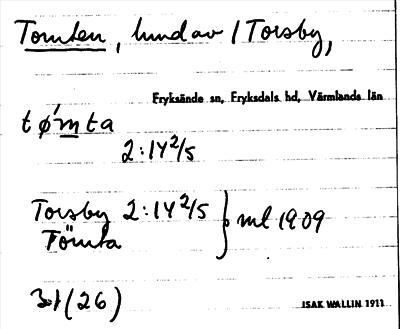 Tomten, hund av / Torsby,
Fryksände sn, Fryksdals hd, Värmlands län
tø'mta
2:14²/5
Torsby 2:14²/5 } ml 1909
Tömta
31 (26)
ISAK WALLIN 1911